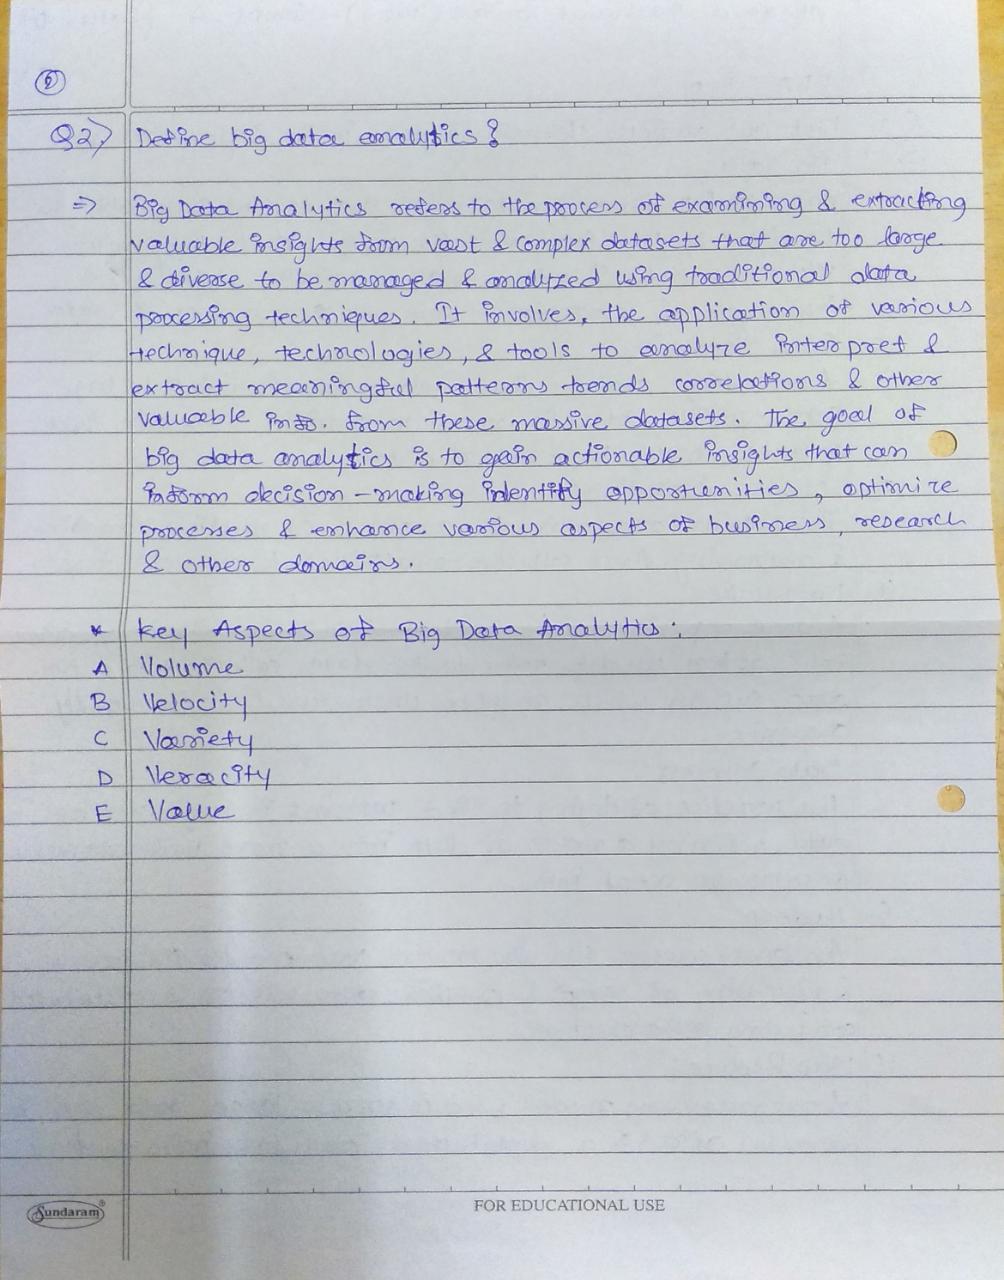 6
Q2) Define big data analytics?
⇒ Big Data Analytics refers to the process of examining & extracting
valuable insights from vast & complex datasets that are too large
& diverse to be managed & analyzed using traditional data
processing techniques. It involves, the application of various
technique, technologies, & tools to analyze interpret &
extract meaningful patterns trends correlations & other
valuable info. from these massive datasets. The goal of
big data analytics is to gain actionable insights that can
inform decision-making identify opportunities, optimize
processes & enhance various aspects of business, research
& other domains.
* Key Aspects of Big Data Analytics:
A Volume
B Velocity
C Variety
D Veracity
E Value
Sundaram®
FOR EDUCATIONAL USE